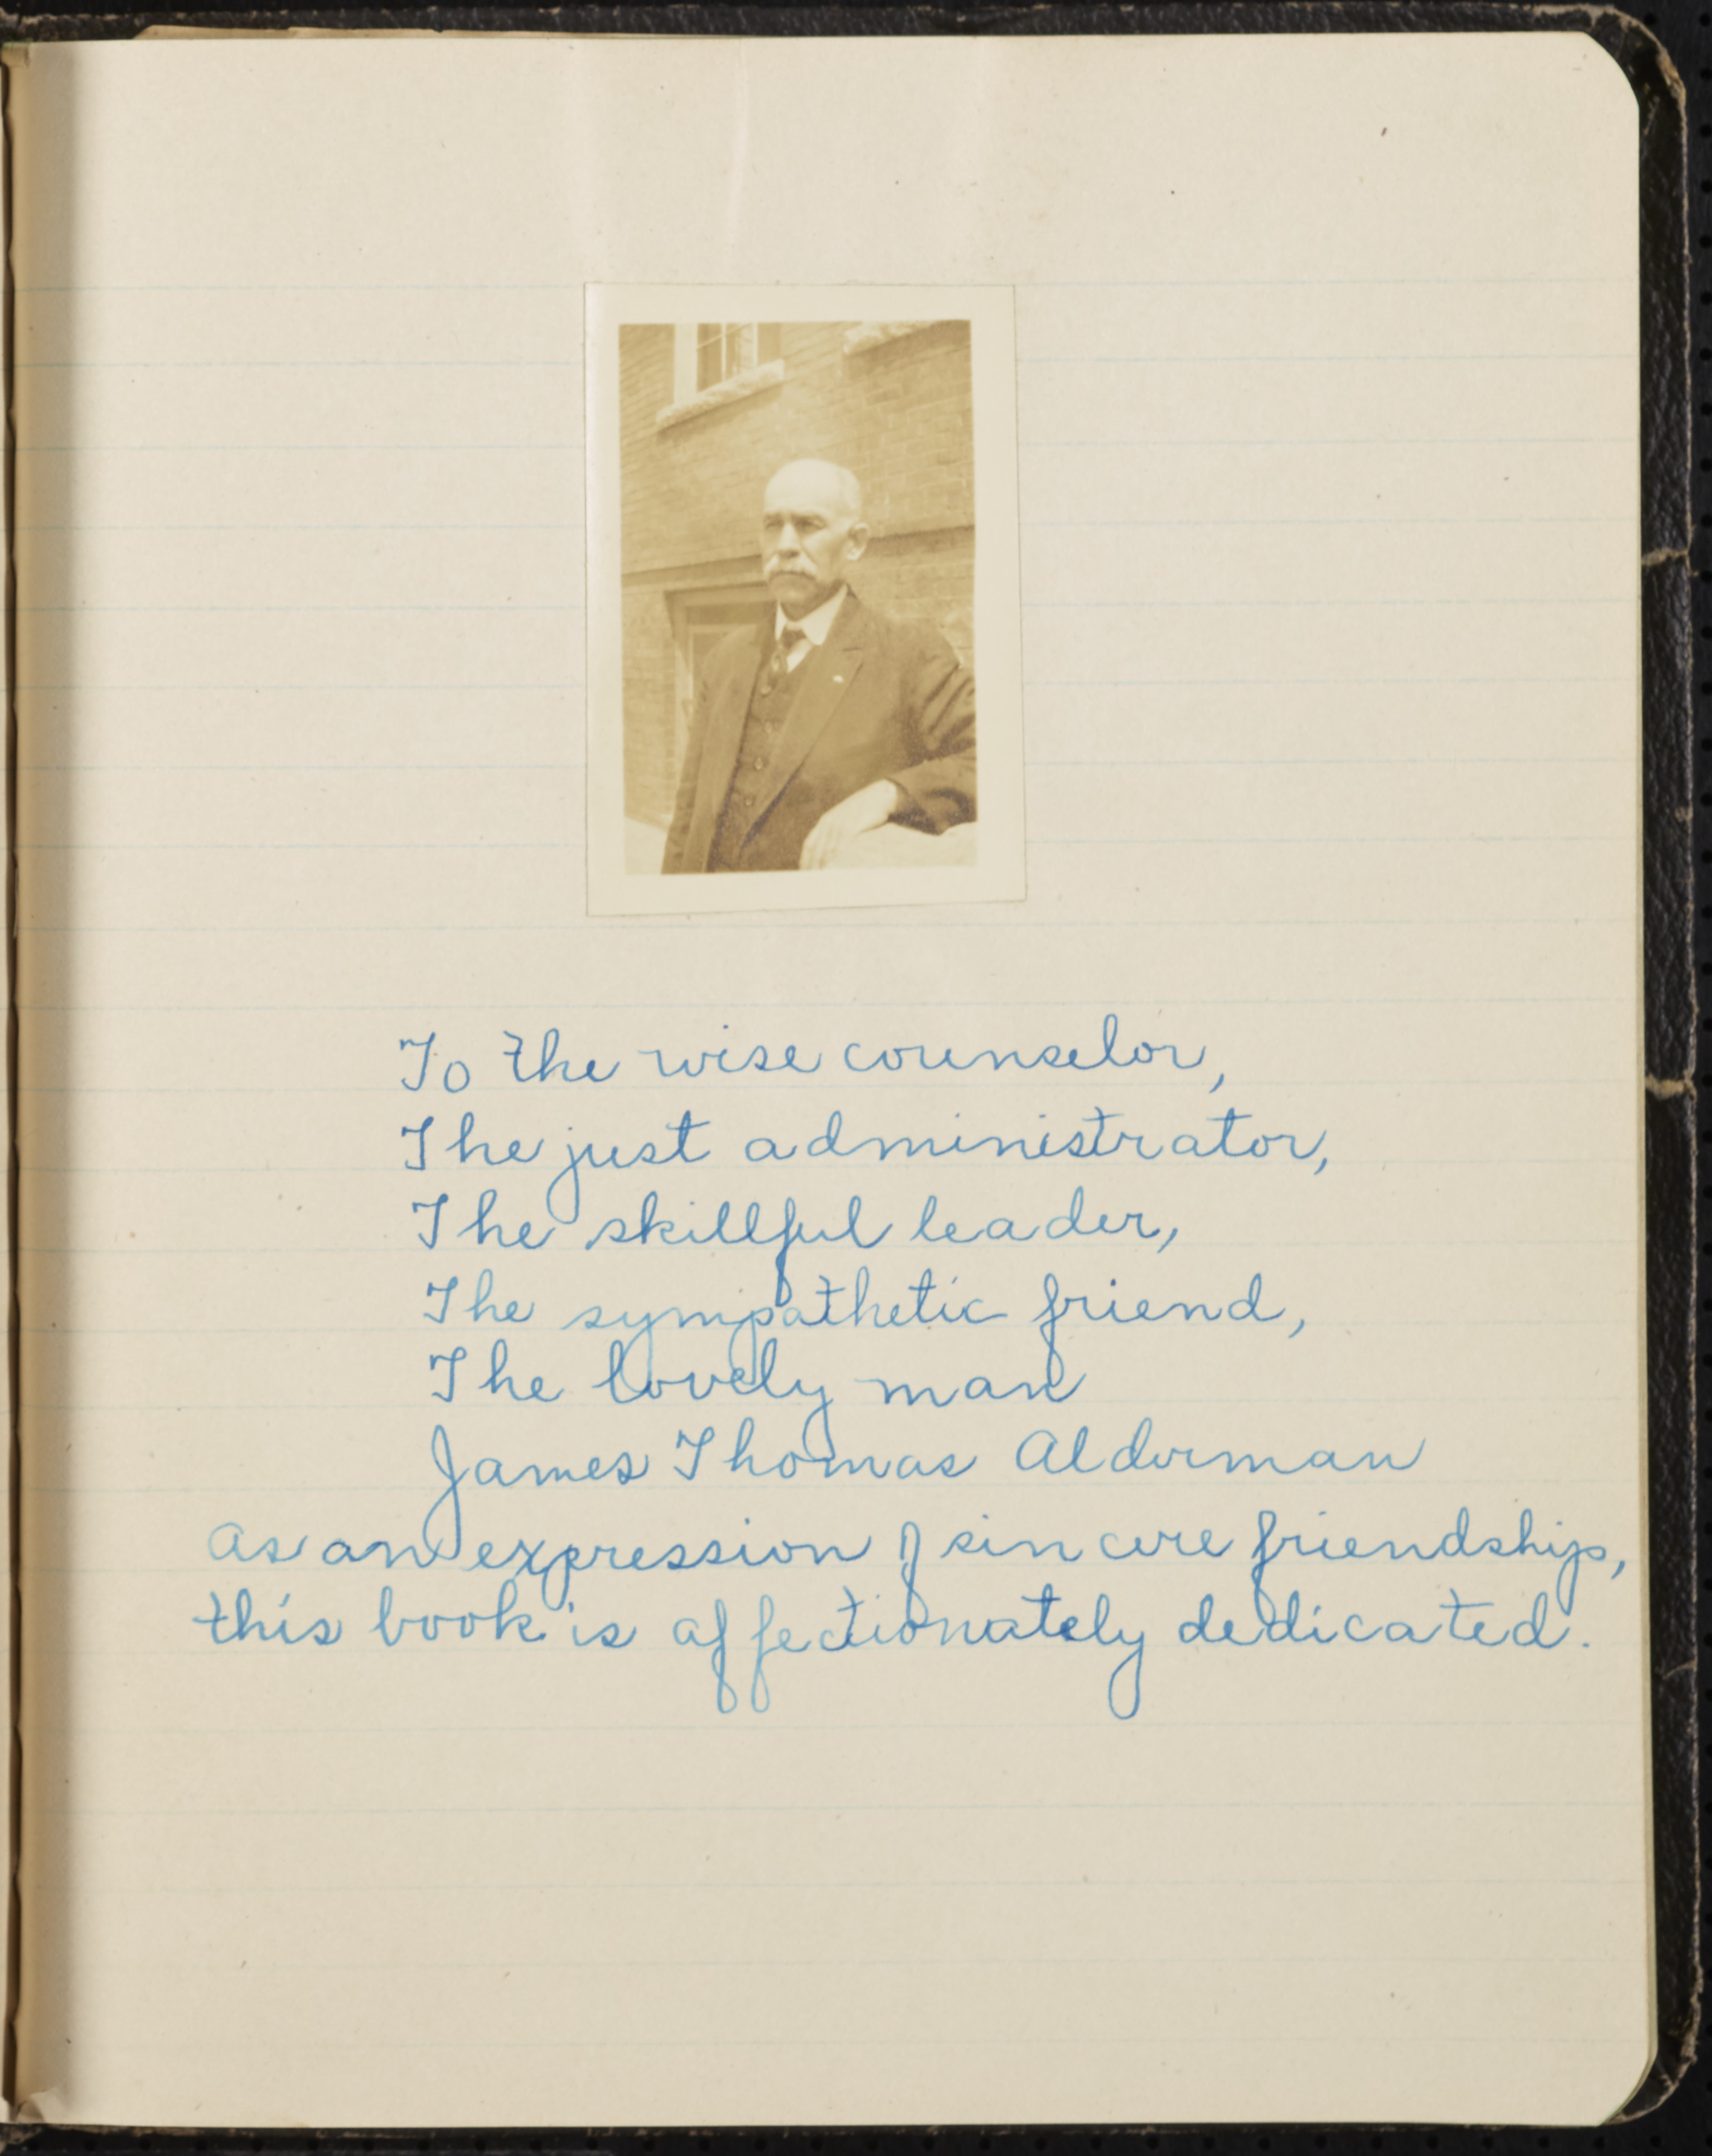 To the wise counselor,
The just administrator,
The skillful leader,
The sympathetic friend,
The lovely man
James Thomas Alderman
as an expression of sincere friendship,
this book is affectionately dedicated.